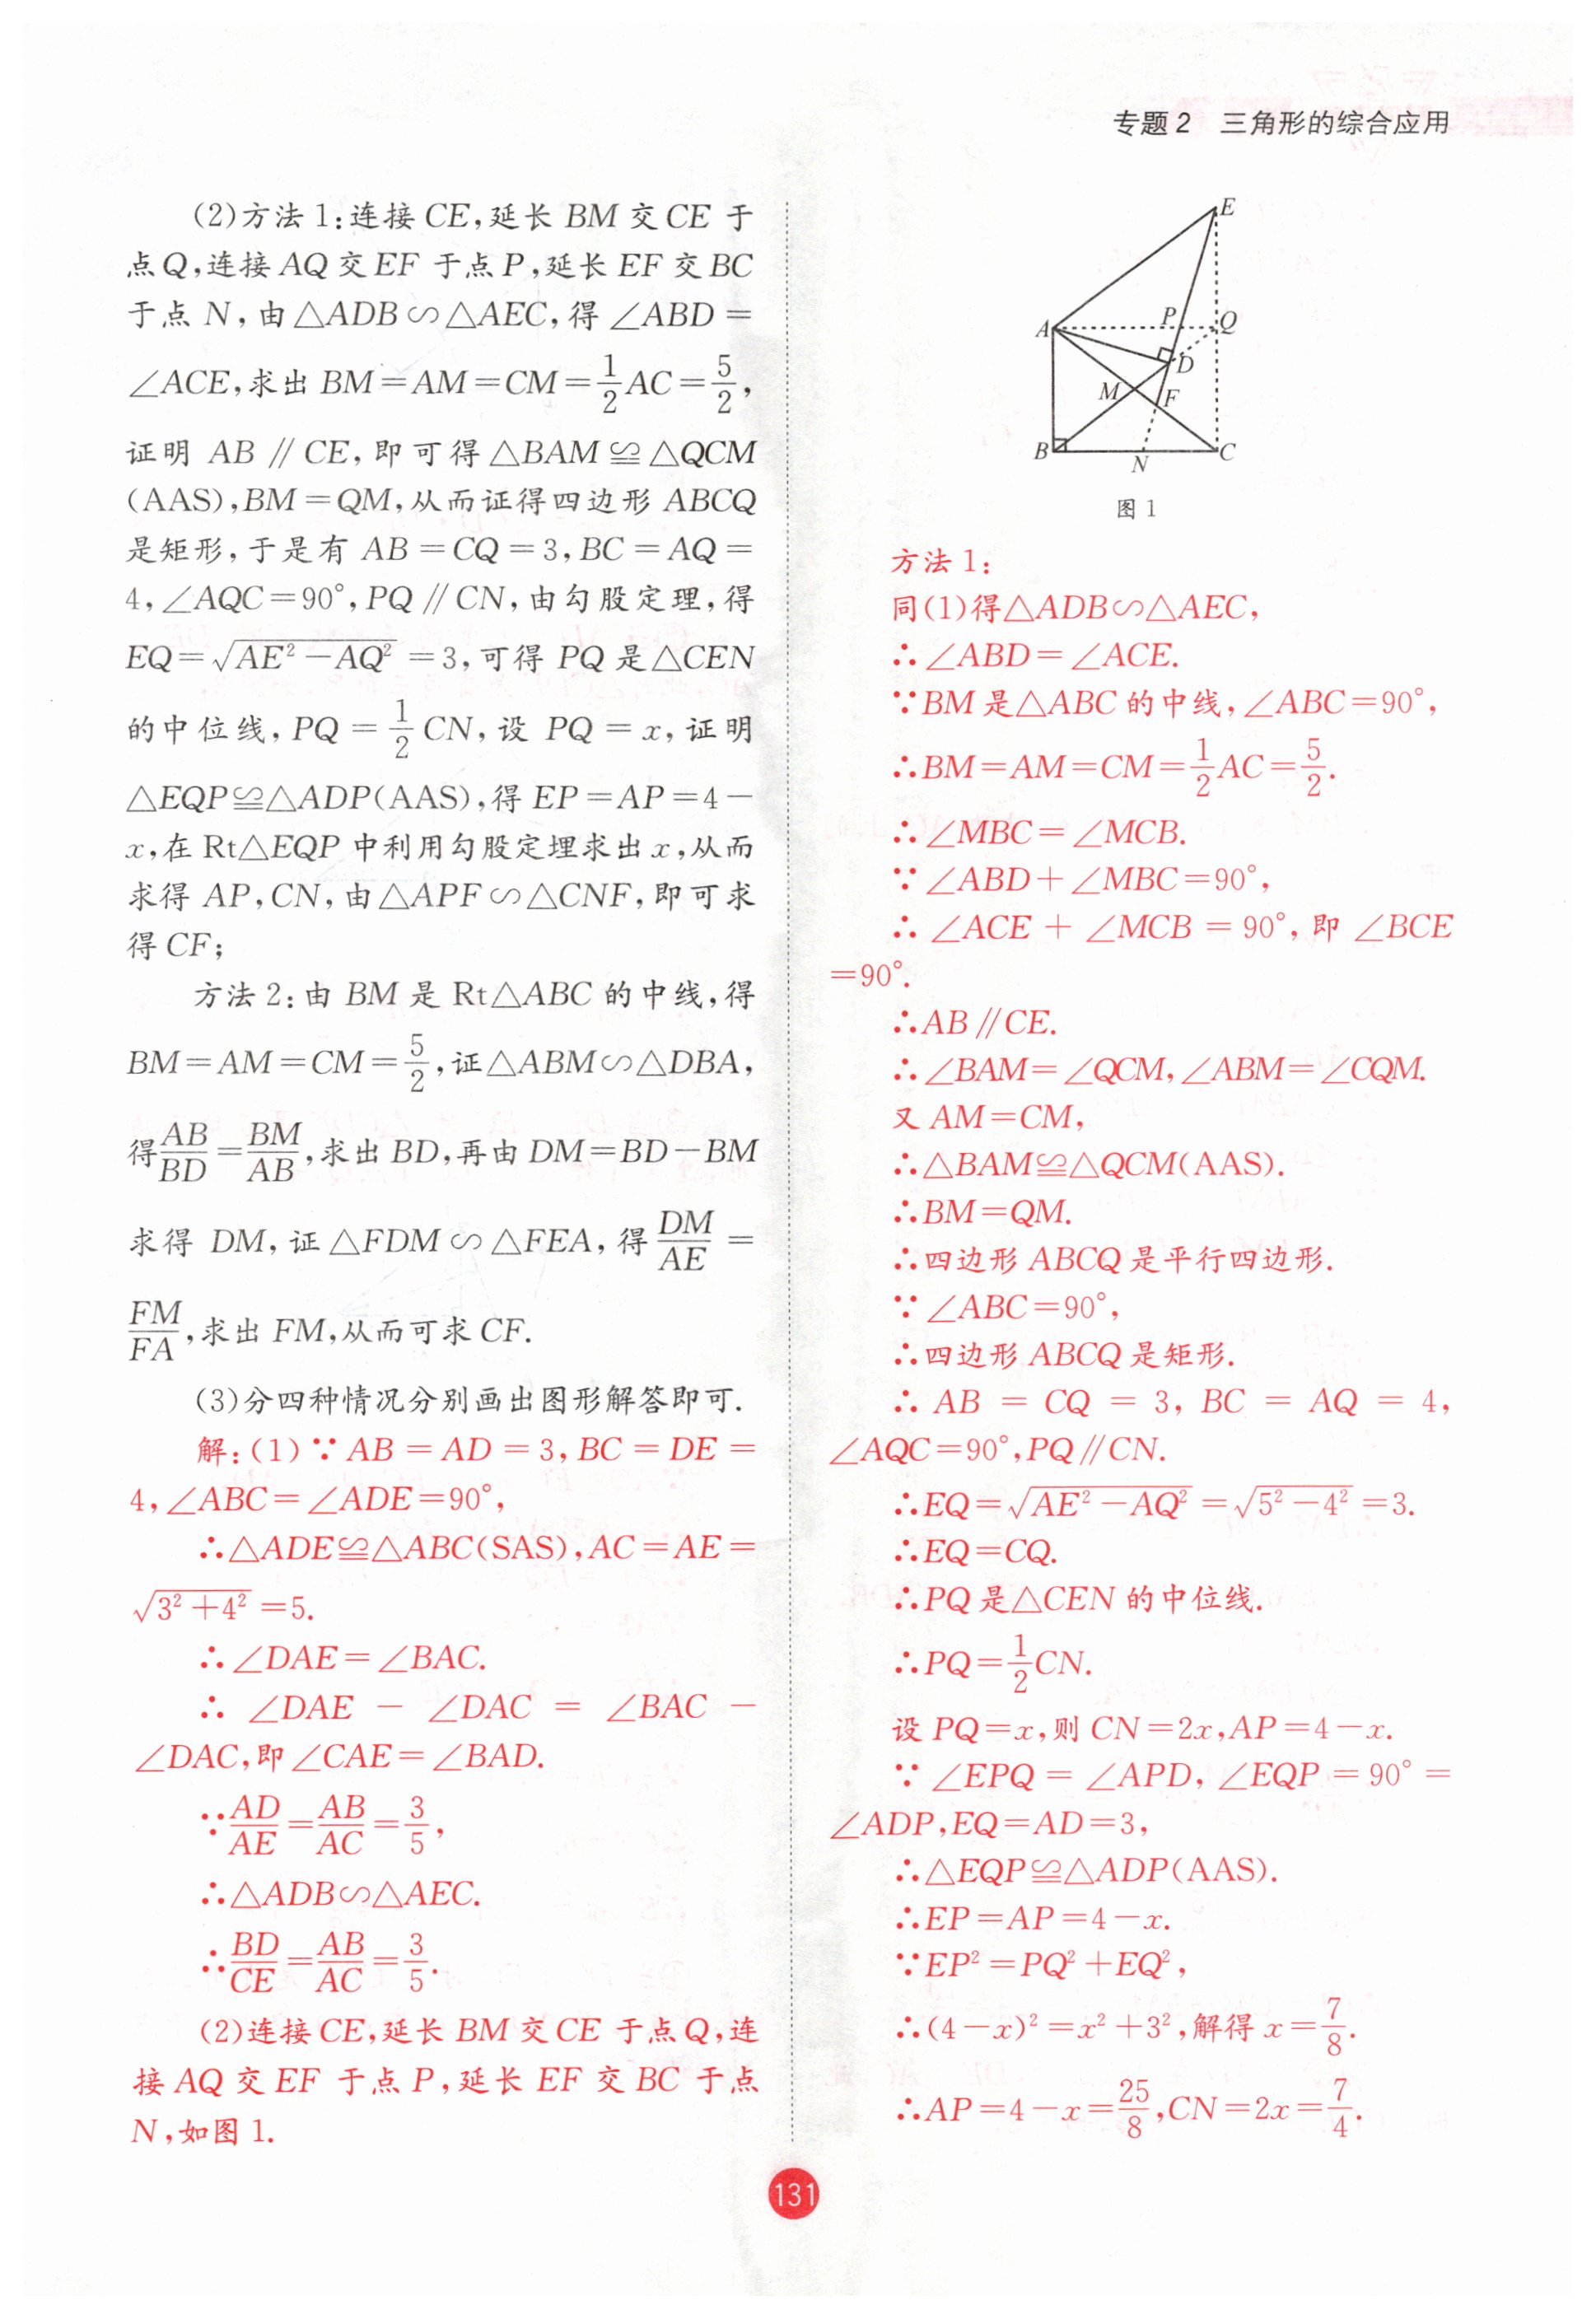 专题2 三角形的综合应用
(2)方法1:连接CE,延长BM交CE于
点Q,连接AQ交EF于点P,延长EF交BC
于点N,由△ADB∽△AEC,得∠ABD=
∠ACE,求出BM=AM=CM=1/2AC=5/2,
证明AB∥CE,即可得△BAM≌△QCM
(AAS),BM=QM,从而证得四边形ABCQ
是矩形,于是有AB=CQ=3,BC=AQ=
4,∠AQC=90°,PQ∥CN,由勾股定理,得
EQ=√(AE²-AQ²)=3,可得PQ是△CEN
的中位线,PQ=1/2CN,设PQ=x,证明
△EQP≌△ADP(AAS),得EP=AP=4-
x,在Rt△EQP中利用勾股定埋求出x,从而
求得AP,CN,由△APF∽△CNF,即可求
得CF;
方法2:由BM是Rt△ABC的中线,得
BM=AM=CM=5/2,证△ABM∽△DBA,
得AB/BD=BM/AB,求出BD,再由DM=BD-BM
求得DM,证△FDM∽△FEA,得DM/AE=
FM/FA,求出FM,从而可求CF.
(3)分四种情况分别画出图形解答即可.
解:(1)∵AB=AD=3,BC=DE=
4,∠ABC=∠ADE=90°,
∴△ADE≌△ABC(SAS),AC=AE=
√(3²+4²)=5.
∴∠DAE=∠BAC.
∴∠DAE-∠DAC=∠BAC-
∠DAC,即∠CAE=∠BAD.
∵AD/AE=AB/AC=3/5,
∴△ADB∽△AEC.
∴BD/CE=AB/AC=3/5.
(2)连接CE,延长BM交CE于点Q,连
接AQ交EF于点P,延长EF交BC于点
N,如图1.
E
A
P
Q
D
M
F
B
N
C
图1
方法1:
同(1)得△ADB∽△AEC,
∴∠ABD=∠ACE.
∵BM是△ABC的中线,∠ABC=90°,
∴BM=AM=CM=1/2AC=5/2.
∴∠MBC=∠MCB.
∵∠ABD+∠MBC=90°,
∴∠ACE+∠MCB=90°,即∠BCE
=90°.
∴AB∥CE.
∴∠BAM=∠QCM,∠ABM=∠CQM.
又AM=CM,
∴△BAM≌△QCM(AAS).
∴BM=QM.
∴四边形ABCQ是平行四边形.
∵∠ABC=90°,
∴四边形ABCQ是矩形.
∴AB=CQ=3,BC=AQ=4,
∠AQC=90°,PQ∥CN.
∴EQ=√(AE²-AQ²)=√(5²-4²)=3.
∴EQ=CQ.
∴PQ是△CEN的中位线.
∴PQ=1/2CN.
设PQ=x,则CN=2x,AP=4-x.
∵∠EPQ=∠APD,∠EQP=90°=
∠ADP,EQ=AD=3,
∴△EQP≌△ADP(AAS).
∴EP=AP=4-x.
∵EP²=PQ²+EQ²,
∴(4-x)²=x²+3²,解得x=7/8.
∴AP=4-x=25/8,CN=2x=7/4.
131